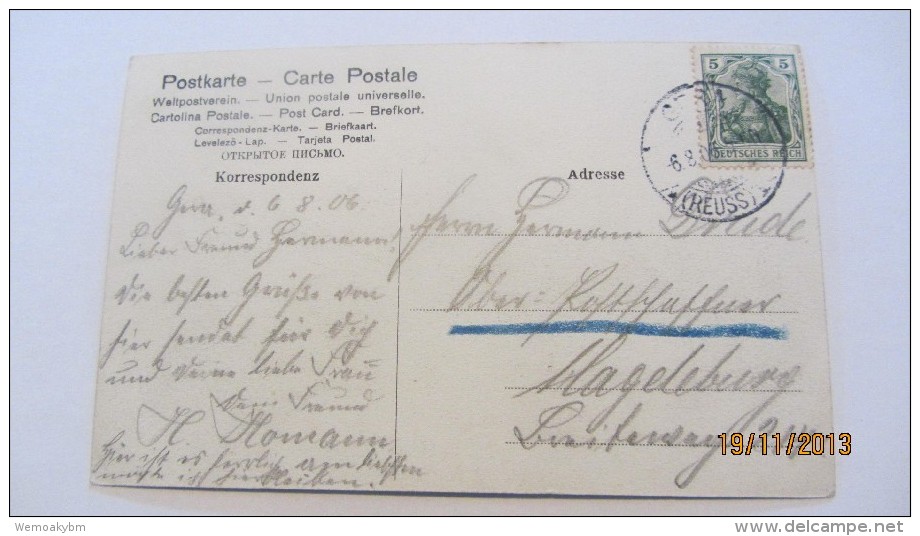 Postkarte — Carte Postale
Weltpostverein. — Union postale universelle.
Cartolina Postale. — Post Card. — Brefkort.
Correspondenz-Karte. — Briefkaart.
Levelező-Lap. — Tarjeta Postal.
ОТКРЫТОЕ ПИСЬМО.
Korrespondenz
Gera, d. 6 8. 06
Lieber Freund Hermann!
Die besten Grüße von
hier sendet für Dich
und Deine liebe Frau
Dein Freund
H. Homann
hier ist es herrlich am liebsten
möchte ich hierbleiben.
5 5
DEUTSCHES REICH
-6.8.
(REUSS)
Adresse
Herrn Hermann
Ober-Postschaffner
Magdeburg
Breiteweg
19/11/2013
Wemoakybm
www.delcampe.net